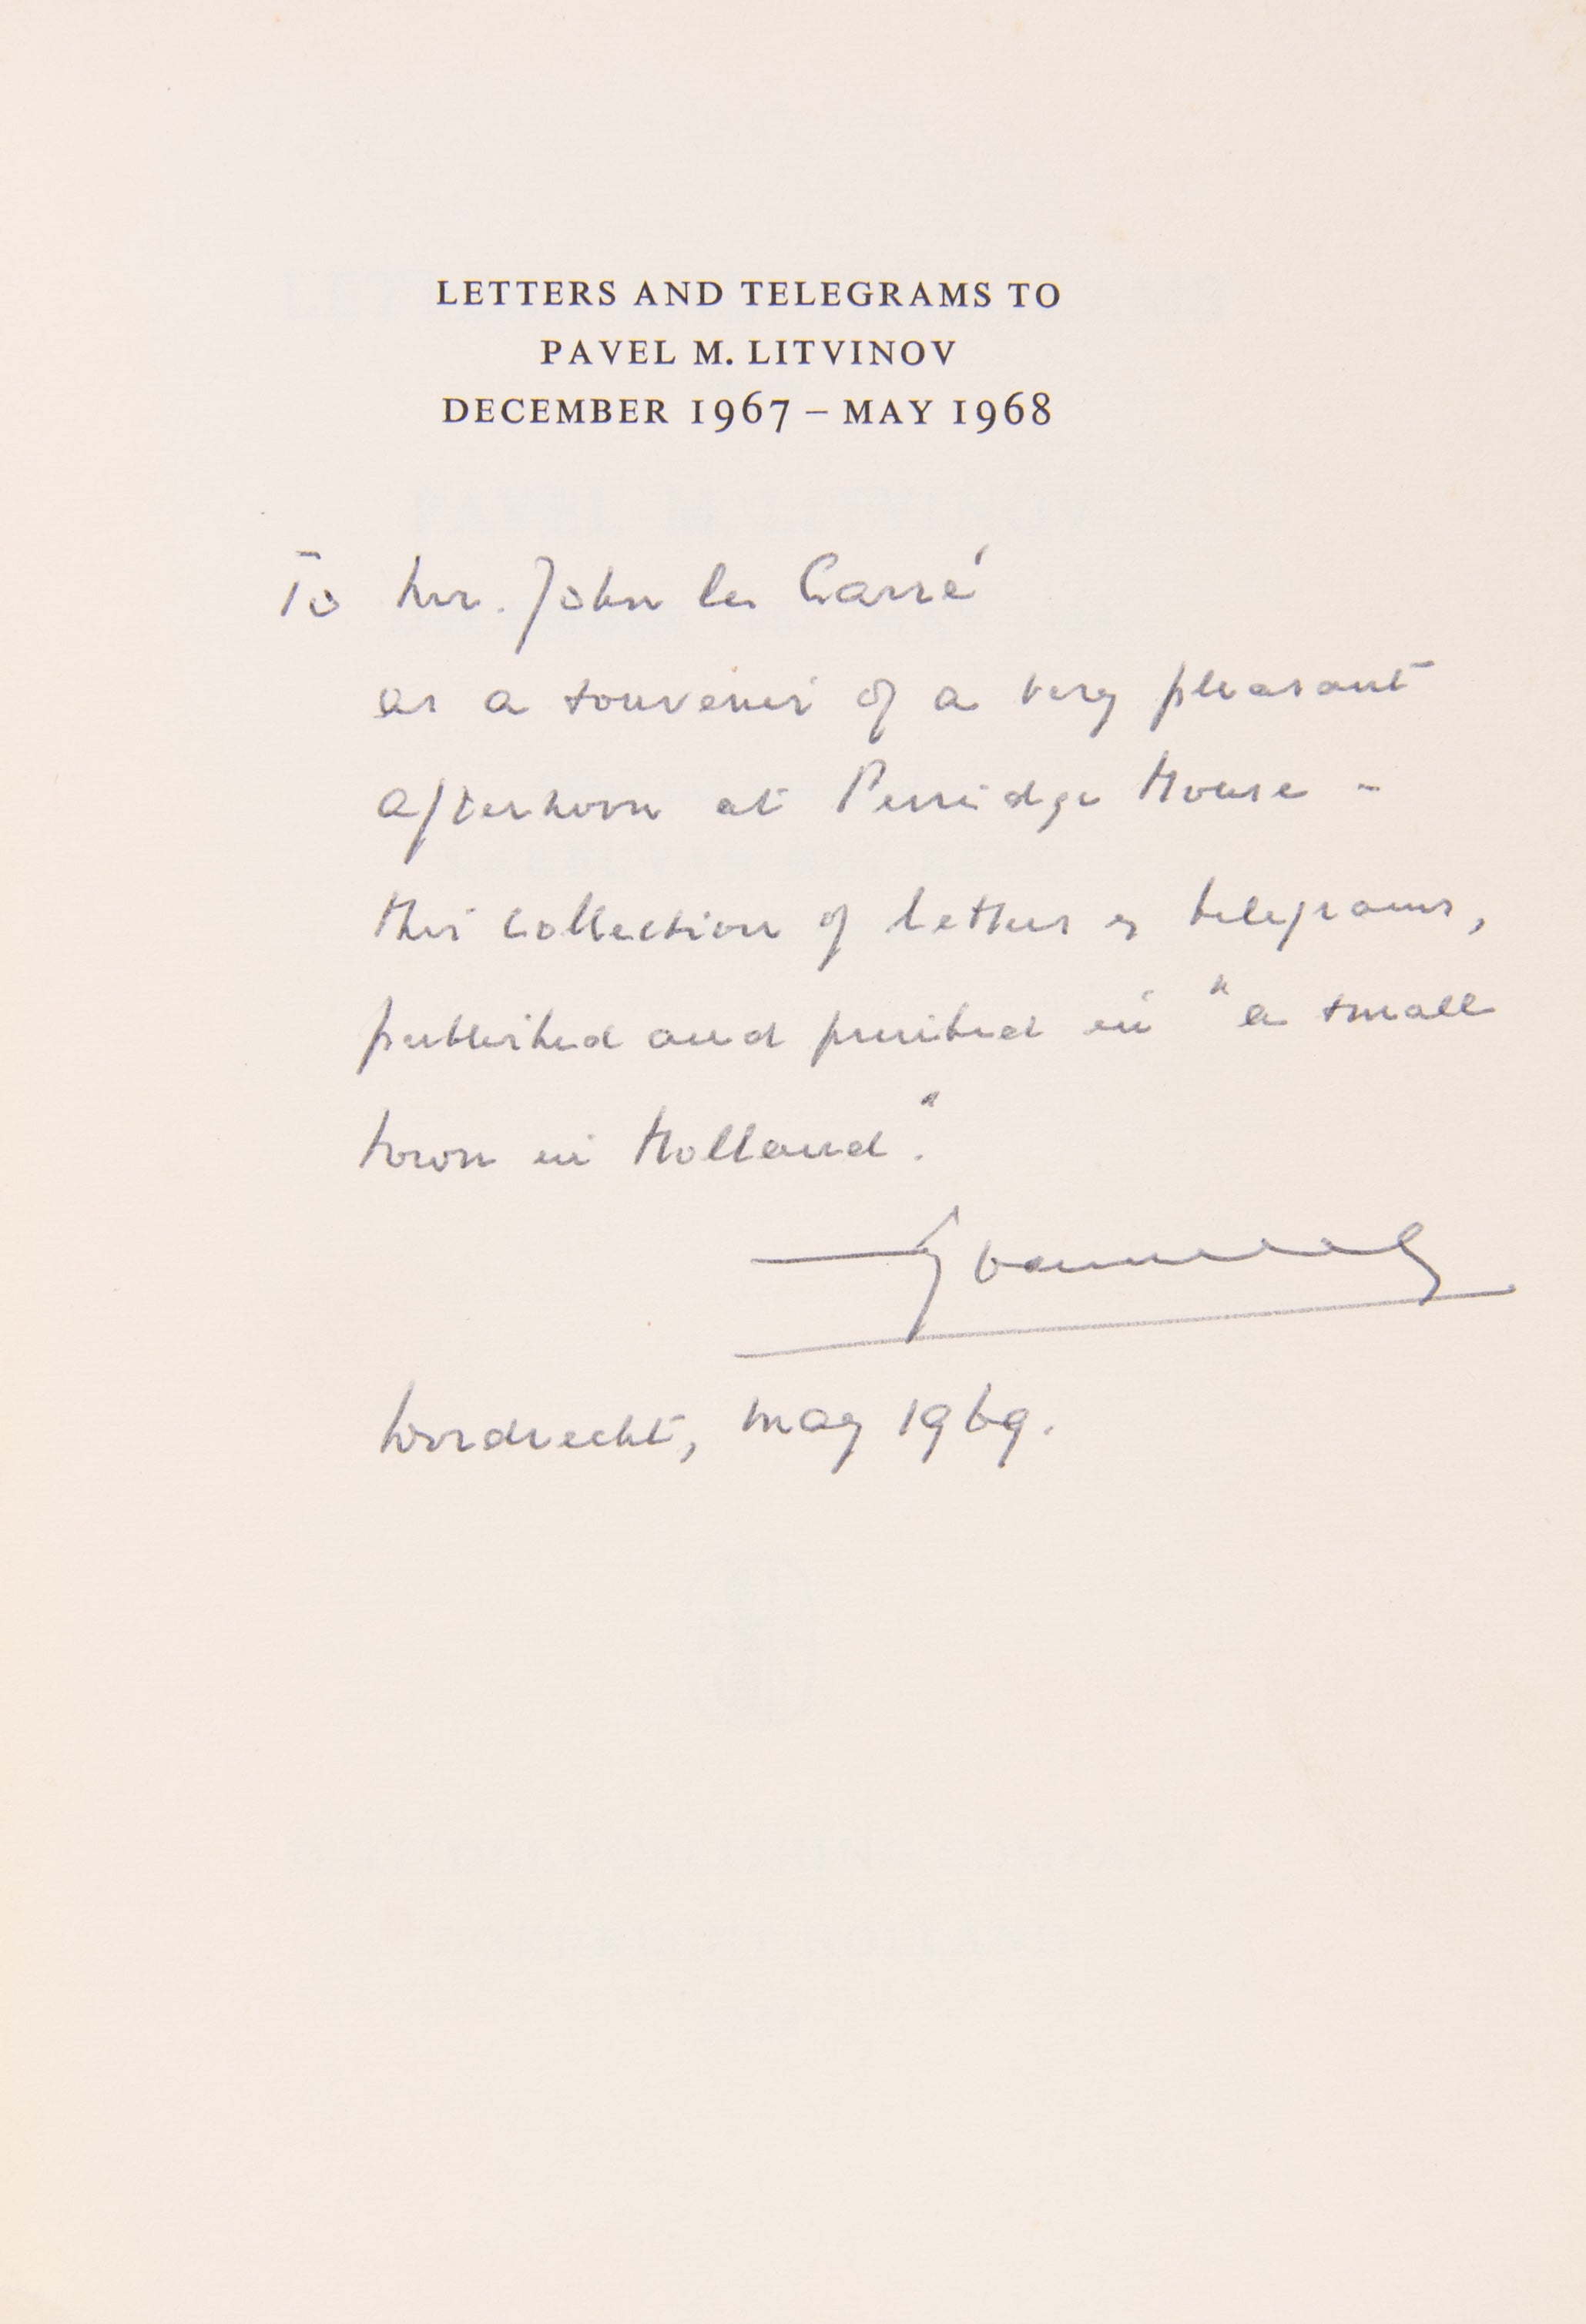 LETTERS AND TELEGRAMS TO
PAVEL M. LITVINOV
DECEMBER 1967 – MAY 1968
To Mr. John le Carré
as a souvenir of a very pleasant
afternoon at Perridge House –
this collection of letters & telegrams,
published and printed in "a small
town in Holland".
Dordrecht, May 1969.